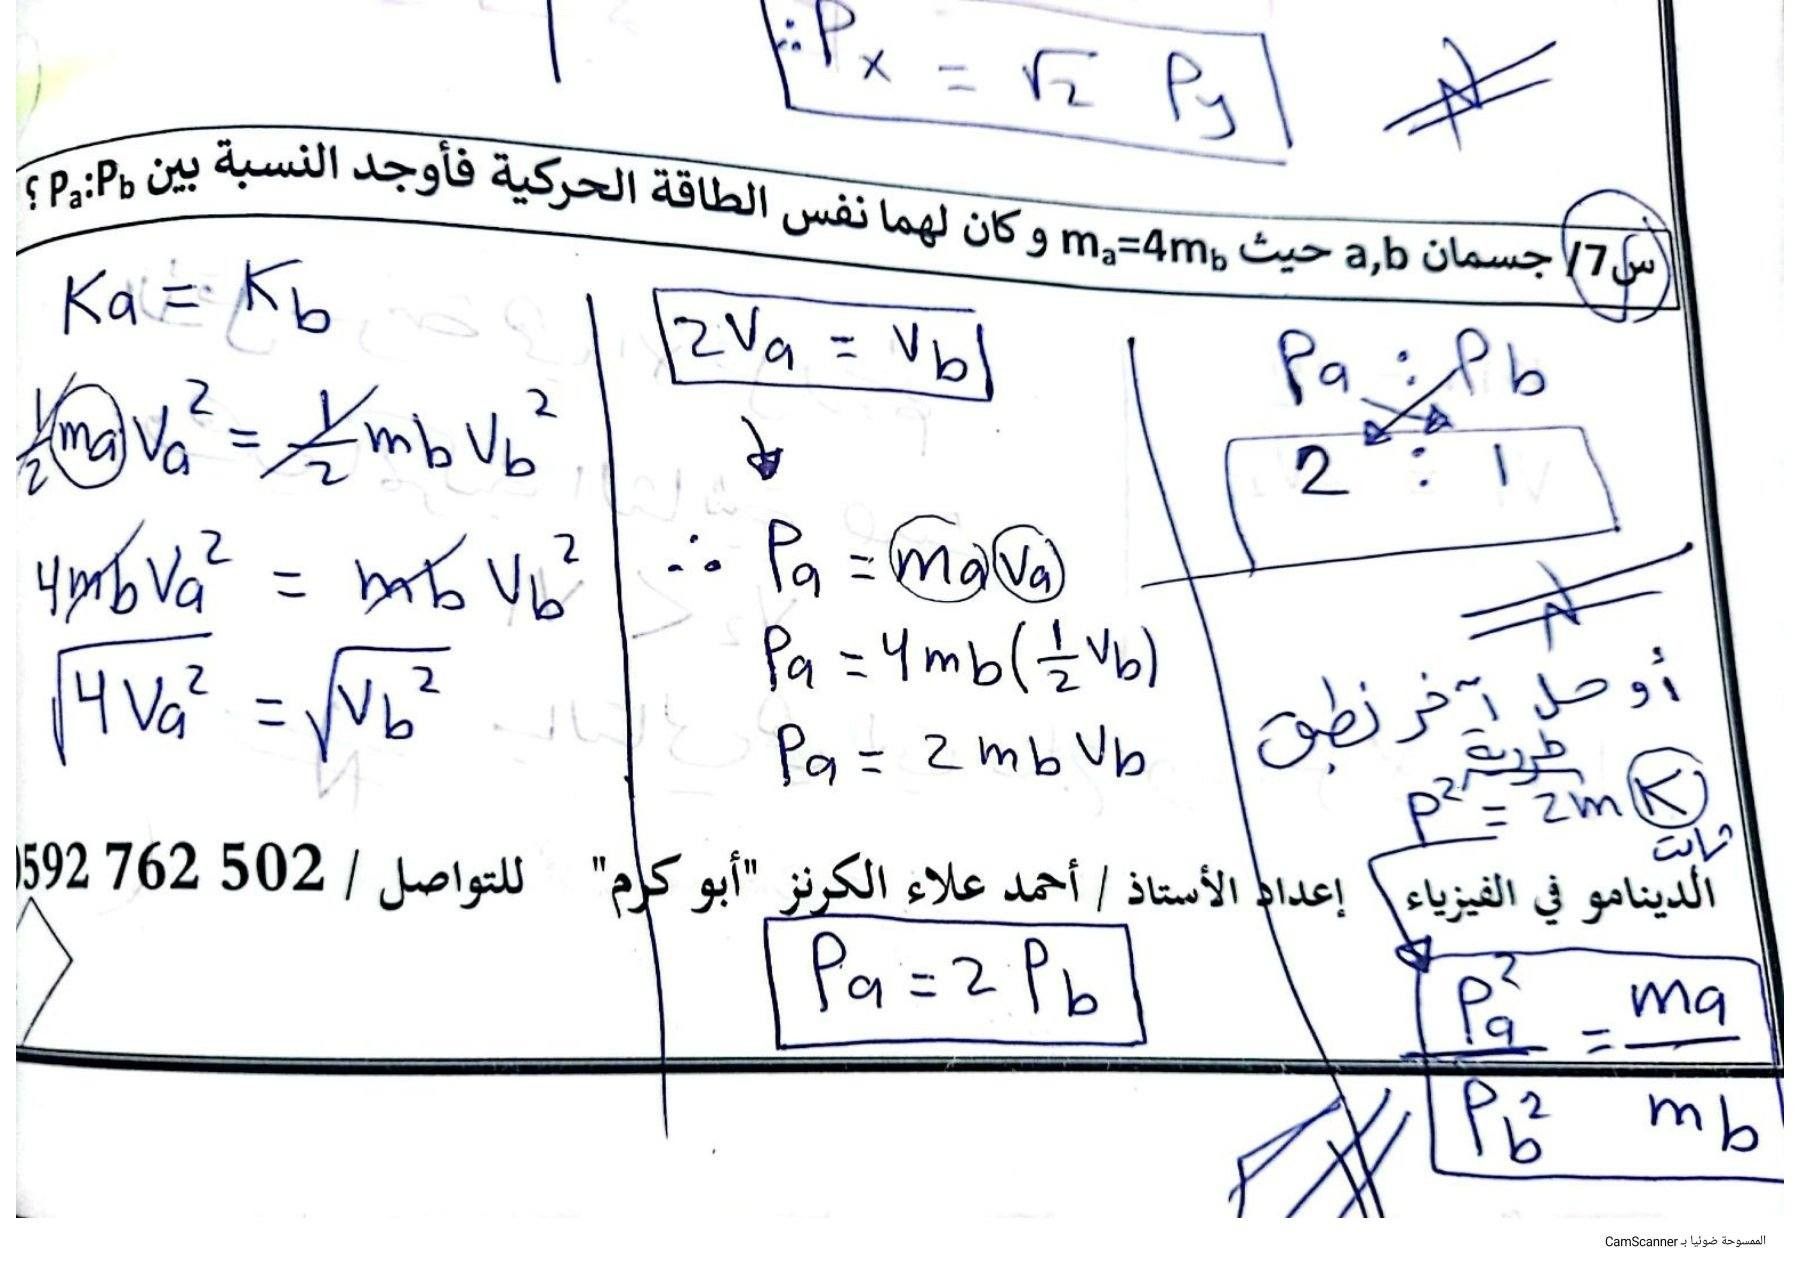 ∴ Px = √2 Py
س7/ جسمان a,b حيث ma=4mb و كان لهما نفس الطاقة الحركية فأوجد النسبة بين Pa:Pb ؟
Ka = Kb
1/2 ma Va² = 1/2 mb Vb²
4mb Va² = mb Vb²
√4Va² = √Vb²
2Va = Vb
∴ Pa = ma Va
Pa = 4mb(1/2 Vb)
Pa = 2 mb Vb
Pa = 2 Pb
Pa : Pb
2 : 1
أو حل آخر نطبق
طريقة
P² = 2m K
ثابت
Pa² / Pb² = ma / mb
الدينامو في الفيزياء إعداد الأستاذ / أحمد علاء الكرنز "أبو كرم" للتواصل / 0592 762 502
الممسوحة ضوئيا بـ CamScanner